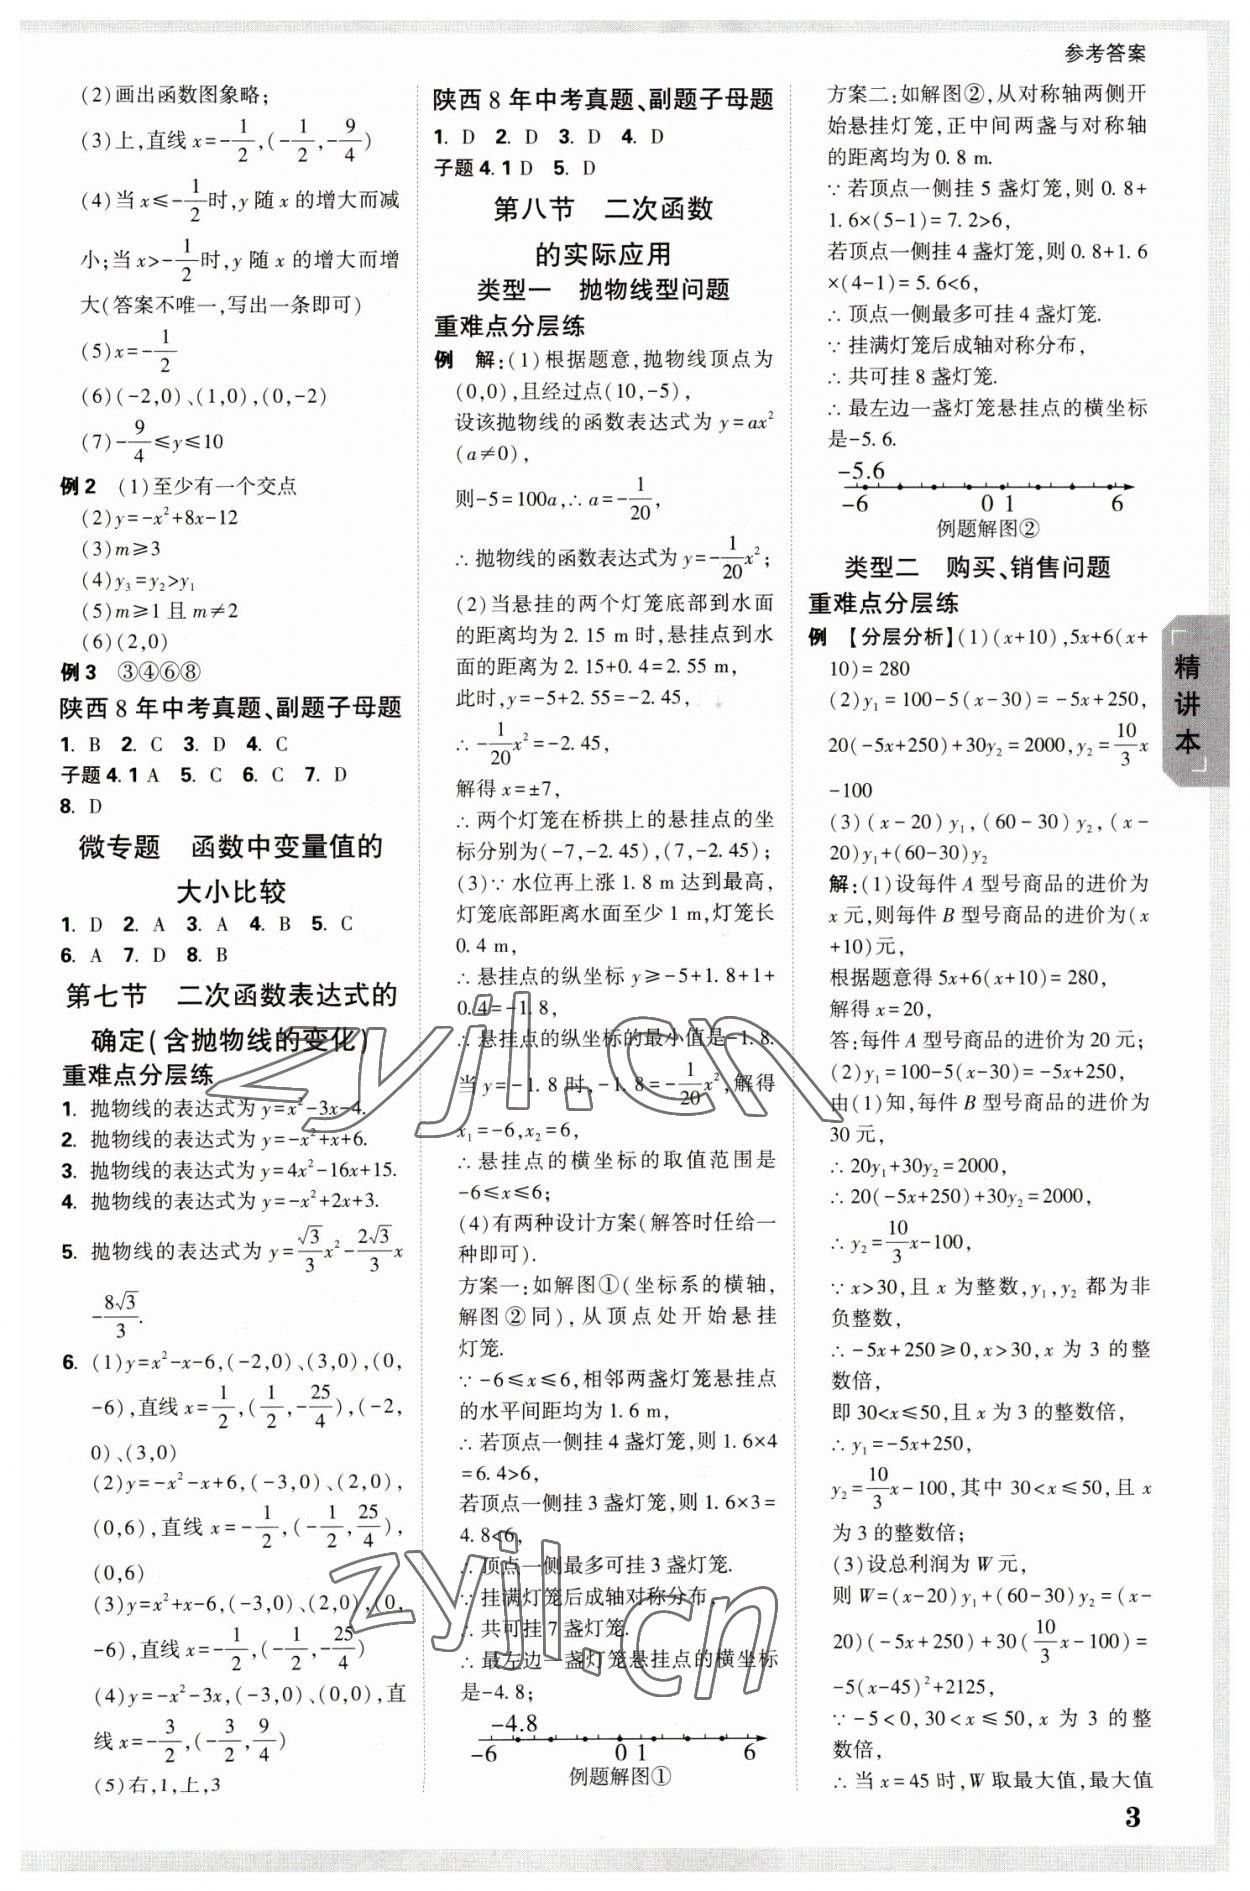 参考答案
(2)画出函数图象略;
(3)上,直线x=-1/2,(-1/2,-9/4)
(4)当x≤-1/2时,y随x的增大而减
小;当x>-1/2时,y随x的增大而增
大(答案不唯一,写出一条即可)
(5)x=-1/2
(6)(-2,0)、(1,0),(0,-2)
(7)-9/4≤y≤10
例2 (1)至少有一个交点
(2)y=-x²+8x-12
(3)m≥3
(4)y₃=y₂>y₁
(5)m≥1且m≠2
(6)(2,0)
例3 ③④⑥⑧
陕西8年中考真题、副题子母题
1. B 2. C 3. D 4. C
子题4.1 A 5. C 6. C 7. D
8. D
微专题 函数中变量值的
大小比较
1. D 2. A 3. A 4. B 5. C
6. A 7. D 8. B
第七节 二次函数表达式的
确定(含抛物线的变化)
重难点分层练
1. 抛物线的表达式为y=x²-3x-4.
2. 抛物线的表达式为y=-x²+x+6.
3. 抛物线的表达式为y=4x²-16x+15.
4. 抛物线的表达式为y=-x²+2x+3.
5. 抛物线的表达式为y=√3/3x²-2√3/3x
-8√3/3.
6. (1)y=x²-x-6,(-2,0)、(3,0),(0,
-6),直线x=1/2,(1/2,-25/4),(-2,
0)、(3,0)
(2)y=-x²-x+6,(-3,0)、(2,0),
(0,6),直线x=-1/2,(-1/2,25/4),
(0,6)
(3)y=x²+x-6,(-3,0)、(2,0),(0,
-6),直线x=-1/2,(-1/2,-25/4)
(4)y=-x²-3x,(-3,0)、(0,0),直
线x=-3/2,(-3/2,9/4)
(5)右,1,上,3
陕西8年中考真题、副题子母题
1. D 2. D 3. D 4. D
子题4.1 D 5. D
第八节 二次函数
的实际应用
类型一 抛物线型问题
重难点分层练
例 解:(1)根据题意,抛物线顶点为
(0,0),且经过点(10,-5),
设该抛物线的函数表达式为y=ax²
(a≠0),
则-5=100a,∴a=-1/20,
∴抛物线的函数表达式为y=-1/20x²;
(2)当悬挂的两个灯笼底部到水面
的距离均为2.15 m时,悬挂点到水
面的距离为2.15+0.4=2.55 m,
此时,y=-5+2.55=-2.45,
∴-1/20x²=-2.45,
解得x=±7,
∴两个灯笼在桥拱上的悬挂点的坐
标分别为(-7,-2.45),(7,-2.45);
(3)∵水位再上涨1.8 m达到最高,
灯笼底部距离水面至少1 m,灯笼长
0.4 m,
∴悬挂点的纵坐标y≥-5+1.8+1+
0.4=-1.8,
∴悬挂点的纵坐标的最小值是-1.8.
当y=-1.8时,-1.8=-1/20x²,解得
x₁=-6,x₂=6,
∴悬挂点的横坐标的取值范围是
-6≤x≤6;
(4)有两种设计方案(解答时任给一
种即可).
方案一:如解图①(坐标系的横轴,
解图②同),从顶点处开始悬挂
灯笼.
∵-6≤x≤6,相邻两盏灯笼悬挂点
的水平间距均为1.6 m,
∴若顶点一侧挂4盏灯笼,则1.6×4
=6.4>6,
若顶点一侧挂3盏灯笼,则1.6×3=
4.8<6,
∴顶点一侧最多可挂3盏灯笼.
∵挂满灯笼后成轴对称分布,
∴共可挂7盏灯笼.
∴最左边一盏灯笼悬挂点的横坐标
是-4.8;
-4.8
-6 0 1 6
例题解图①
方案二:如解图②,从对称轴两侧开
始悬挂灯笼,正中间两盏与对称轴
的距离均为0.8 m.
∵若顶点一侧挂5盏灯笼,则0.8+
1.6×(5-1)=7.2>6,
若顶点一侧挂4盏灯笼,则0.8+1.6
×(4-1)=5.6<6,
∴顶点一侧最多可挂4盏灯笼.
∵挂满灯笼后成轴对称分布,
∴共可挂8盏灯笼.
∴最左边一盏灯笼悬挂点的横坐标
是-5.6.
-5.6
-6 0 1 6
例题解图②
类型二 购买、销售问题
重难点分层练
例 【分层分析】(1)(x+10),5x+6(x+
10)=280
(2)y₁=100-5(x-30)=-5x+250,
20(-5x+250)+30y₂=2000,y₂=10/3x
-100
(3)(x-20)y₁,(60-30)y₂,(x-
20)y₁+(60-30)y₂
解:(1)设每件A型号商品的进价为
x元,则每件B型号商品的进价为(x
+10)元,
根据题意得5x+6(x+10)=280,
解得x=20,
答:每件A型号商品的进价为20元;
(2)y₁=100-5(x-30)=-5x+250,
由(1)知,每件B型号商品的进价为
30元,
∴20y₁+30y₂=2000,
∴20(-5x+250)+30y₂=2000,
∴y₂=10/3x-100,
∵x>30,且x为整数,y₁,y₂都为非
负整数,
∴-5x+250≥0,x>30,x为3的整
数倍,
即30<x≤50,且x为3的整数倍,
∴y₁=-5x+250,
y₂=10/3x-100,其中30<x≤50,且x
为3的整数倍;
(3)设总利润为W元,
则W=(x-20)y₁+(60-30)y₂=(x-
20)(-5x+250)+30(10/3x-100)=
-5(x-45)²+2125,
∵-5<0,30<x≤50,x为3的整
数倍,
∴当x=45时,W取最大值,最大值
精讲本
3
zyjl.cn
zyjl.cn